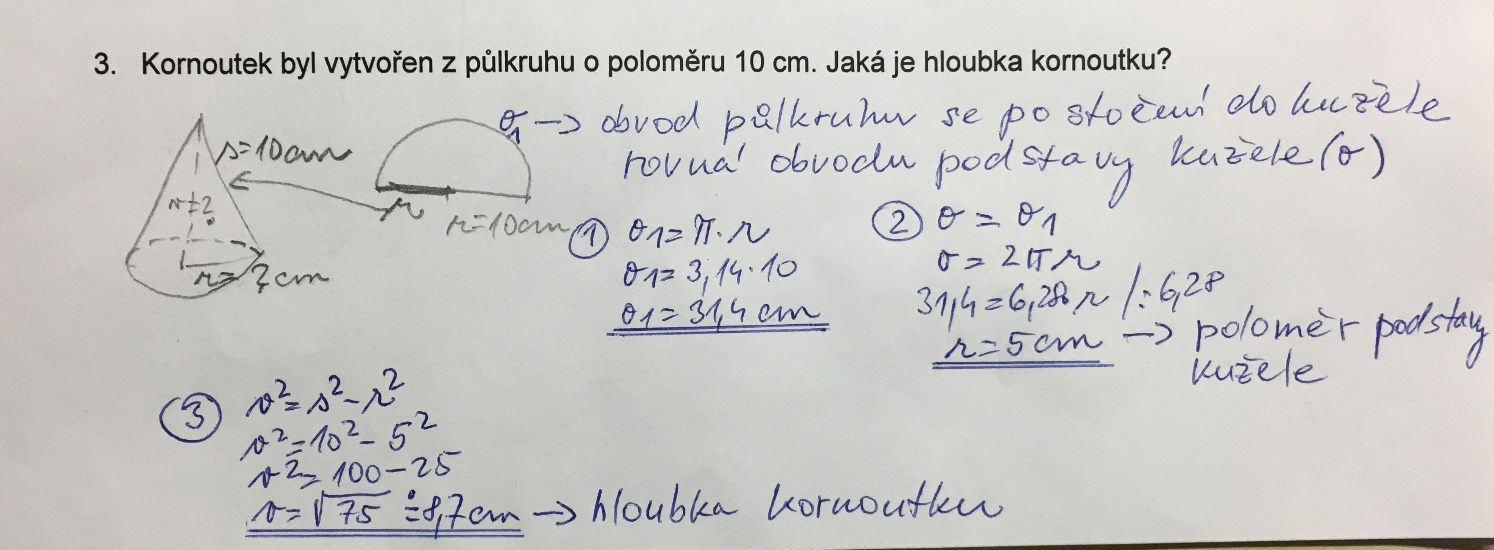 3. Kornoutek byl vytvořen z půlkruhu o poloměru 10 cm. Jaká je hloubka kornoutku?
s=10cm
v=?
r=?cm
r
r=10cm
o1 → obvod půlkruhu se po stočení do kužele
rovná obvodu podstavy kužele (o)
① o1=π·r
o1=3,14·10
o1=31,4cm
② o=o1
o=2πr
31,4=6,28·r /:6,28
r=5cm → poloměr podstavy
kužele
③ v²=s²-r²
v²=10²-5²
v²=100-25
v=√75 ≐8,7cm → hloubka kornoutku